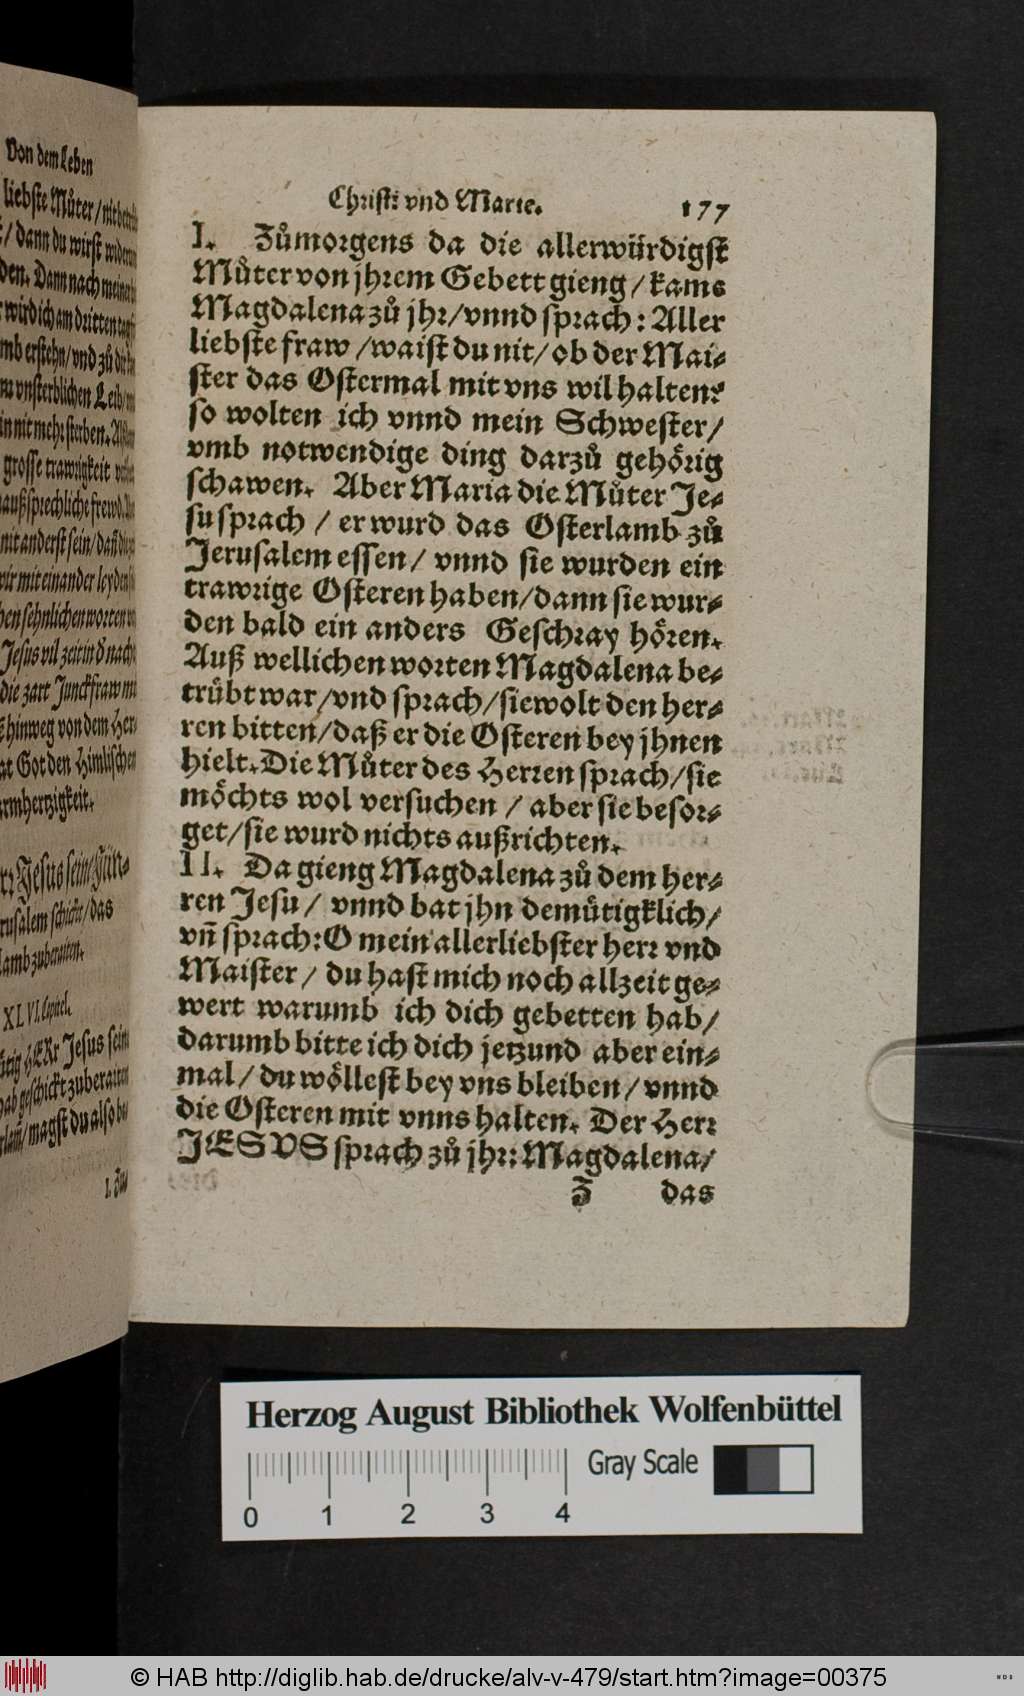 Von dem Leben
liebste Můter / nit
/ dann du wirst
den. Dann nach meine
wird ich am dritten tag
erstehn / vnd zů
vnsterblichen Leib
nit mehr sterben.
grosse trawrigkeit
außsprechliche frewd.
nit anderst sein / dañ
wir mit einander leyden
sehnlichen worten
Jesus vil zeit in der nach
die zart Junckfraw
hinweg von dem Her
Got den Himlischen
armhertzigkeit.
Jesus seine Jün-
schickt / das
lamb zuberaiten.
XLVI. Capitel.
HERr Jesus sein
geschickt zuberaiten
/ magst du also
Christi vnd Marie. 177
I. Zůmorgens da die allerwürdigst
Můter von jhrem Gebett gieng / kams
Magdalena zů jhr / vnnd sprach: Aller
liebste fraw / waist du nit / ob der Mai-
ster das Ostermal mit vns wil halten?
so wolten ich vnnd mein Schwester /
vmb notwendige ding darzů gehörig
schawen. Aber Maria die Můter Je-
su sprach / er wurd das Osterlamb zů
Jerusalem essen / vnnd sie wurden ein
trawrige Osteren haben / dann sie wur-
den bald ein anders Geschray hören.
Auß wellichen worten Magdalena be-
trůbt war / vnd sprach / sie wolt den her-
ren bitten / daß er die Osteren bey jhnen
hielt. Die Můter des Herren sprach / sie
möchts wol versuchen / aber sie besor-
get / sie wurd nichts außrichten.
II. Da gieng Magdalena zů dem her-
ren Jesu / vnnd bat jhn demůtigklich /
vñ sprach: O mein allerliebster herr vnd
Maister / du hast mich noch allzeit ge-
wert warumb ich dich gebetten hab /
darumb bitte ich dich jetzund aber ein-
mal / du wöllest bey vns bleiben / vnnd
die Osteren mit vnns halten. Der Herr
JESVS sprach zů jhr: Magdalena /
Z das
Herzog August Bibliothek Wolfenbüttel
Gray Scale
0 1 2 3 4
© HAB http://diglib.hab.de/drucke/alv-v-479/start.htm?image=00375